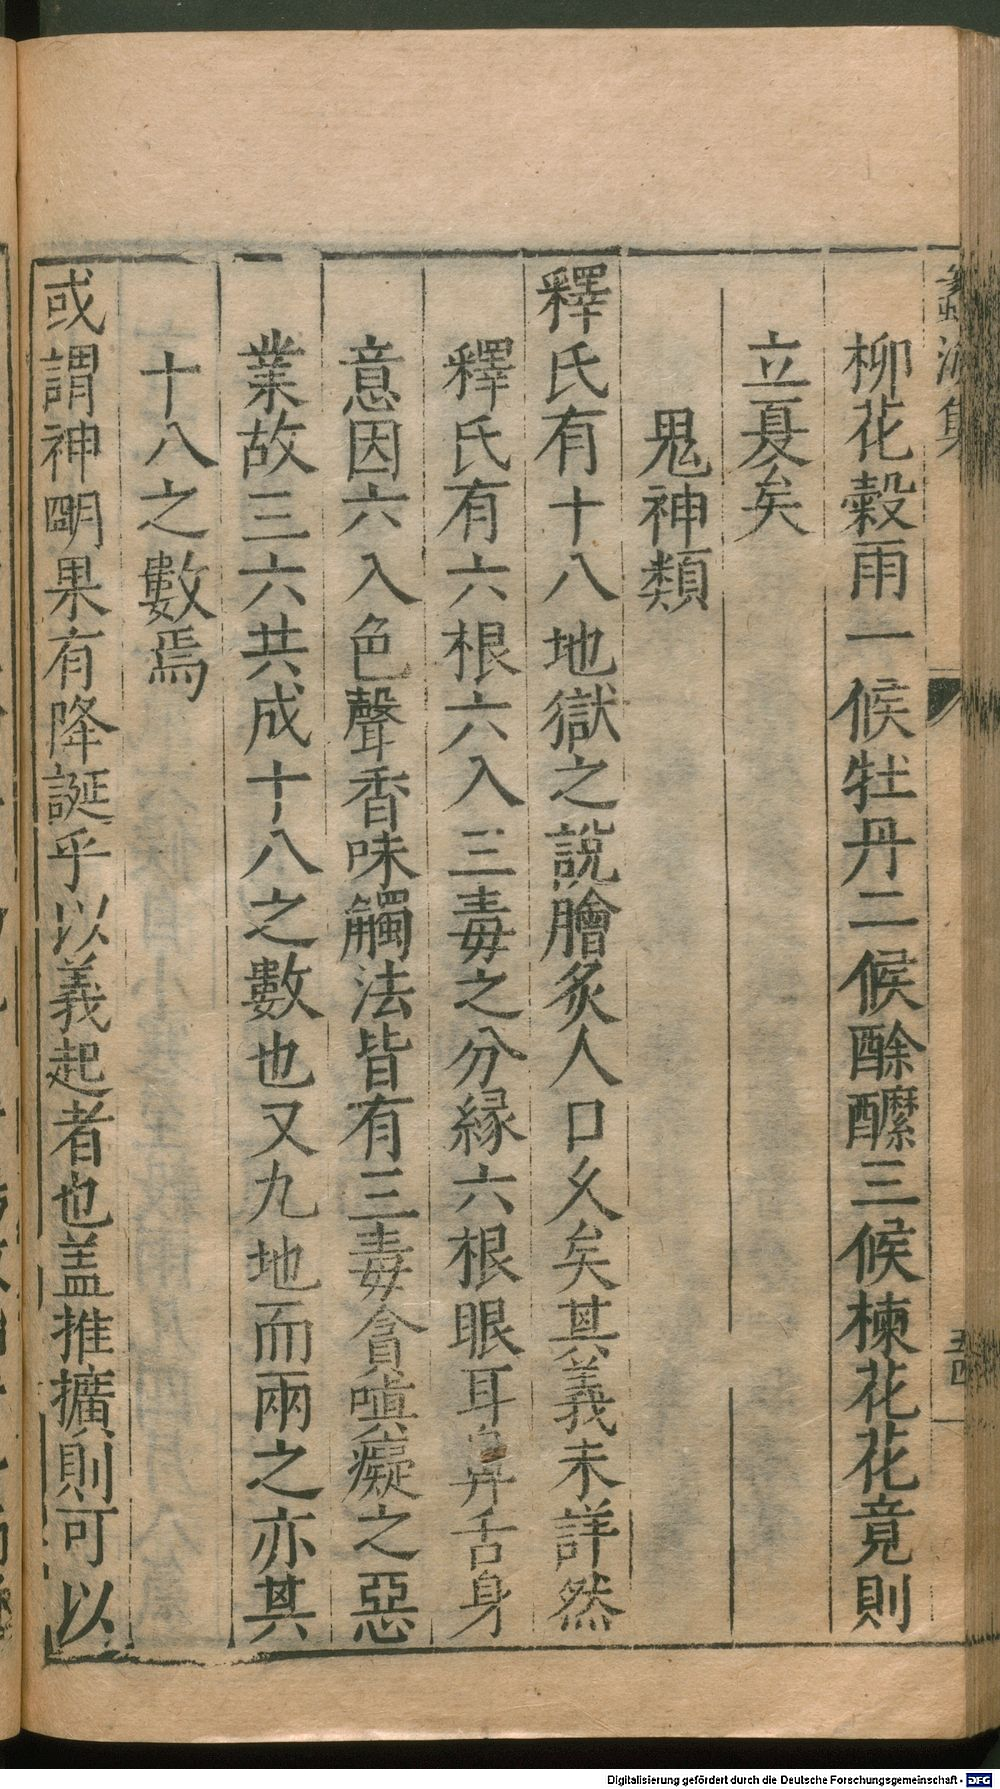 蠡海集
五四
柳花穀雨一候牡丹二候酴醿三候楝花花竟則
立夏矣
鬼神類
釋氏有十八地獄之說膾炙人口久矣其義未詳然
釋氏有六根六入三毒之分緣六根眼耳鼻舌身
意因六入色聲香味觸法皆有三毒貪嗔癡之惡
業故三六共成十八之數也又九地而兩之亦其
十八之數焉
或謂神明果有降誕乎以義起者也盖推擴則可以
Digitalisierung gefördert durch die Deutsche Forschungsgemeinschaft - DFG